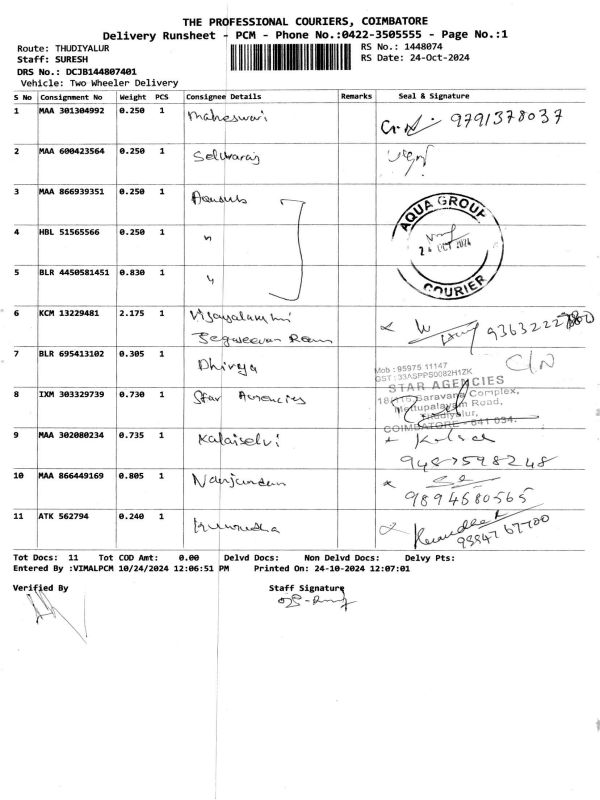 THE PROFESSIONAL COURIERS, COIMBATORE
Delivery Runsheet - PCM - Phone No.:0422-3505555 - Page No.:1
Route: THUDIYALUR RS No.: 1448074
Staff: SURESH RS Date: 24-Oct-2024
DRS No.: DCJB144807401
Vehicle: Two Wheeler Delivery
S No Consignment No Weight PCS Consignee Details Remarks Seal & Signature
1 MAA 301304992 0.250 1 Maheswari 9791378037
2 MAA 600423564 0.250 1 Selvaraj
3 MAA 866939351 0.250 1
AQUA GROUP
4 HBL 51565566 0.250 1 "
OCT 2024
5 BLR 4450581451 0.830 1 "
COURIER
6 KCM 13229481 2.175 1 Vijayalakshmi
Jegajeevan Ram
7 BLR 695413102 0.305 1 Dhivya
Mob : 95975 11147
GST : 33ASPPS0082H1ZK
STAR AGENCIES
8 IXM 303329739 0.730 1 Star Agencies
Saravana Complex,
Mettupalayam Road,
Thudiyalur,
COIMBATORE - 641 034.
9 MAA 302080234 0.735 1 Kalaiselvi
9487598248
10 MAA 866449169 0.805 1 Nanjundan
9894680565
11 ATK 562794 0.240 1
Tot Docs: 11 Tot COD Amt: 0.00 Delvd Docs: Non Delvd Docs: Delvy Pts:
Entered By :VIMALPCM 10/24/2024 12:06:51 PM Printed On: 24-10-2024 12:07:01
Verified By Staff Signature